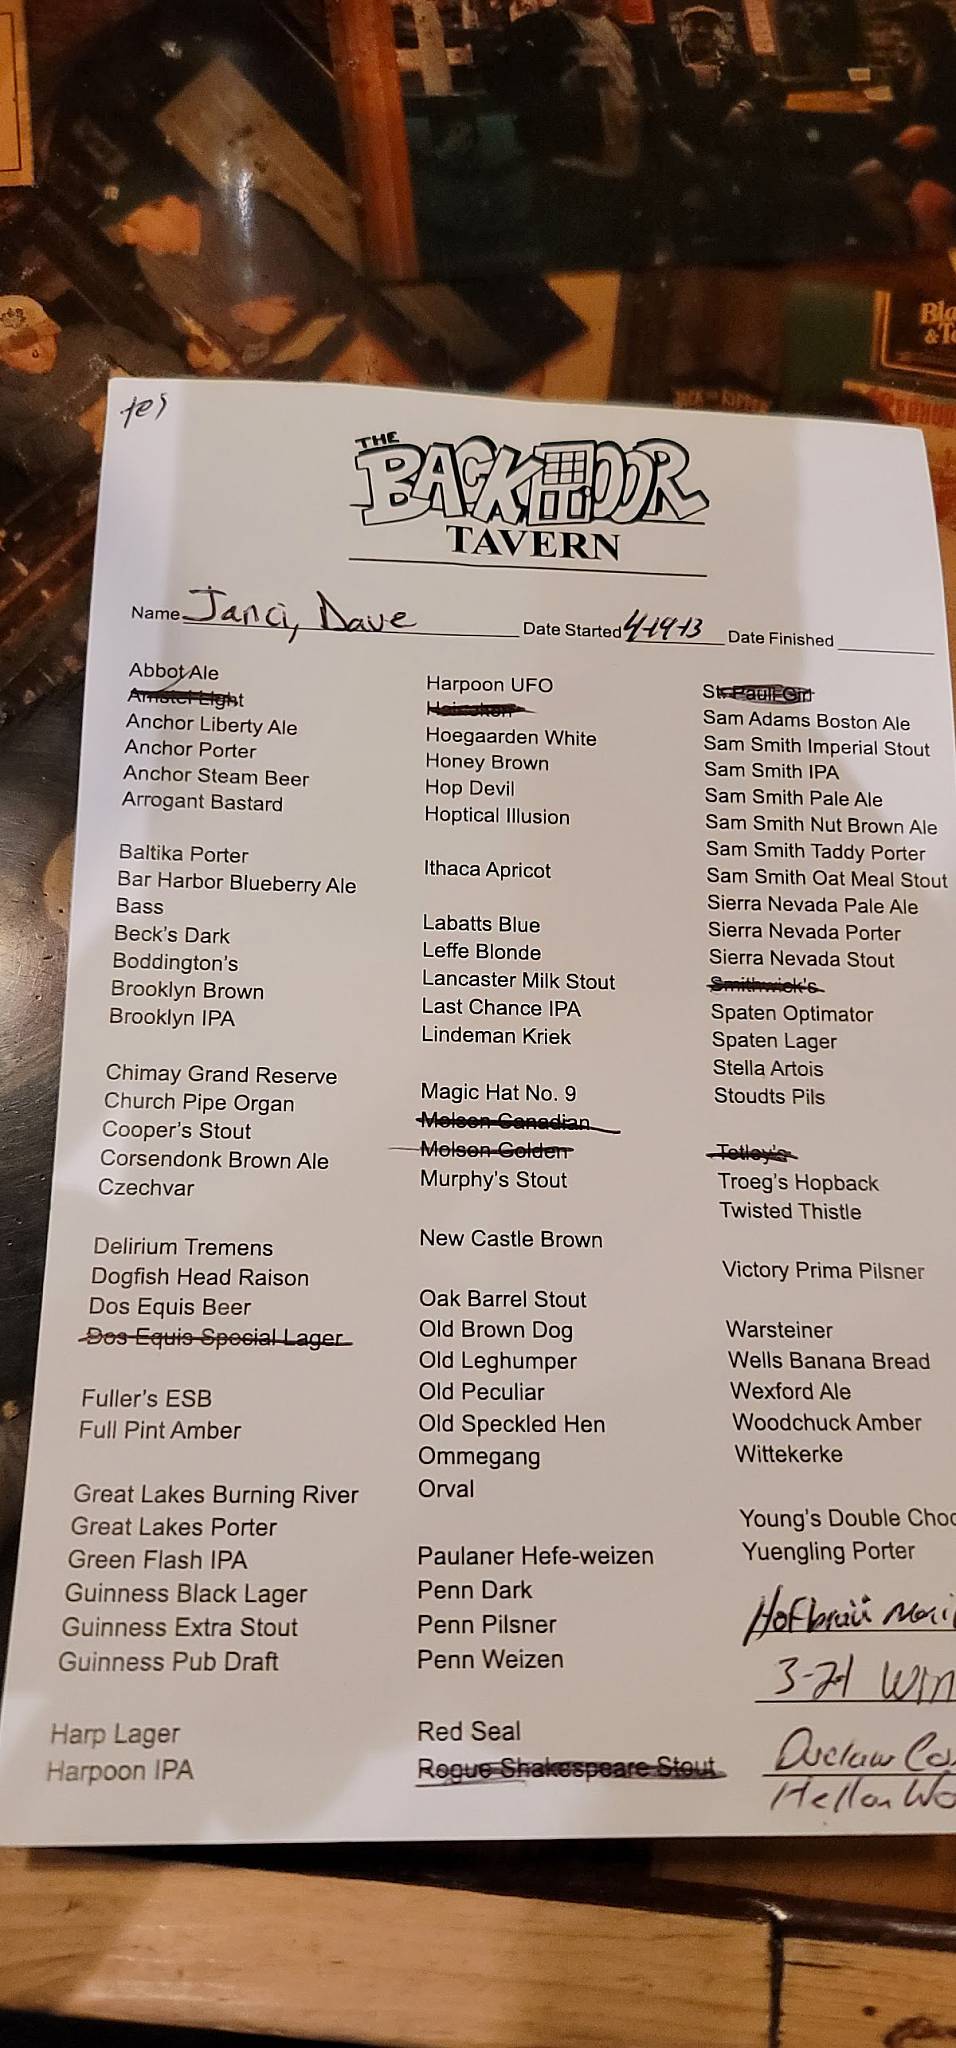 yes
THE
BACKDOOR
TAVERN
Name Janci, Dave Date Started 4-19-13 Date Finished
Abbot Ale
Amstel Light
Anchor Liberty Ale
Anchor Porter
Anchor Steam Beer
Arrogant Bastard
Baltika Porter
Bar Harbor Blueberry Ale
Bass
Beck's Dark
Boddington's
Brooklyn Brown
Brooklyn IPA
Chimay Grand Reserve
Church Pipe Organ
Cooper's Stout
Corsendonk Brown Ale
Czechvar
Delirium Tremens
Dogfish Head Raison
Dos Equis Beer
Dos Equis Special Lager
Fuller's ESB
Full Pint Amber
Great Lakes Burning River
Great Lakes Porter
Green Flash IPA
Guinness Black Lager
Guinness Extra Stout
Guinness Pub Draft
Harp Lager
Harpoon IPA
Harpoon UFO
Heineken
Hoegaarden White
Honey Brown
Hop Devil
Hoptical Illusion
Ithaca Apricot
Labatts Blue
Leffe Blonde
Lancaster Milk Stout
Last Chance IPA
Lindeman Kriek
Magic Hat No. 9
Molson Canadian
Molson Golden
Murphy's Stout
New Castle Brown
Oak Barrel Stout
Old Brown Dog
Old Leghumper
Old Peculiar
Old Speckled Hen
Ommegang
Orval
Paulaner Hefe-weizen
Penn Dark
Penn Pilsner
Penn Weizen
Red Seal
Rogue Shakespeare Stout
St. Pauli Girl
Sam Adams Boston Ale
Sam Smith Imperial Stout
Sam Smith IPA
Sam Smith Pale Ale
Sam Smith Nut Brown Ale
Sam Smith Taddy Porter
Sam Smith Oat Meal Stout
Sierra Nevada Pale Ale
Sierra Nevada Porter
Sierra Nevada Stout
Smithwick's
Spaten Optimator
Spaten Lager
Stella Artois
Stoudts Pils
Tetley's
Troeg's Hopback
Twisted Thistle
Victory Prima Pilsner
Warsteiner
Wells Banana Bread
Wexford Ale
Woodchuck Amber
Wittekerke
Young's Double Choc
Yuengling Porter
Hofbraü
3-21 WIN